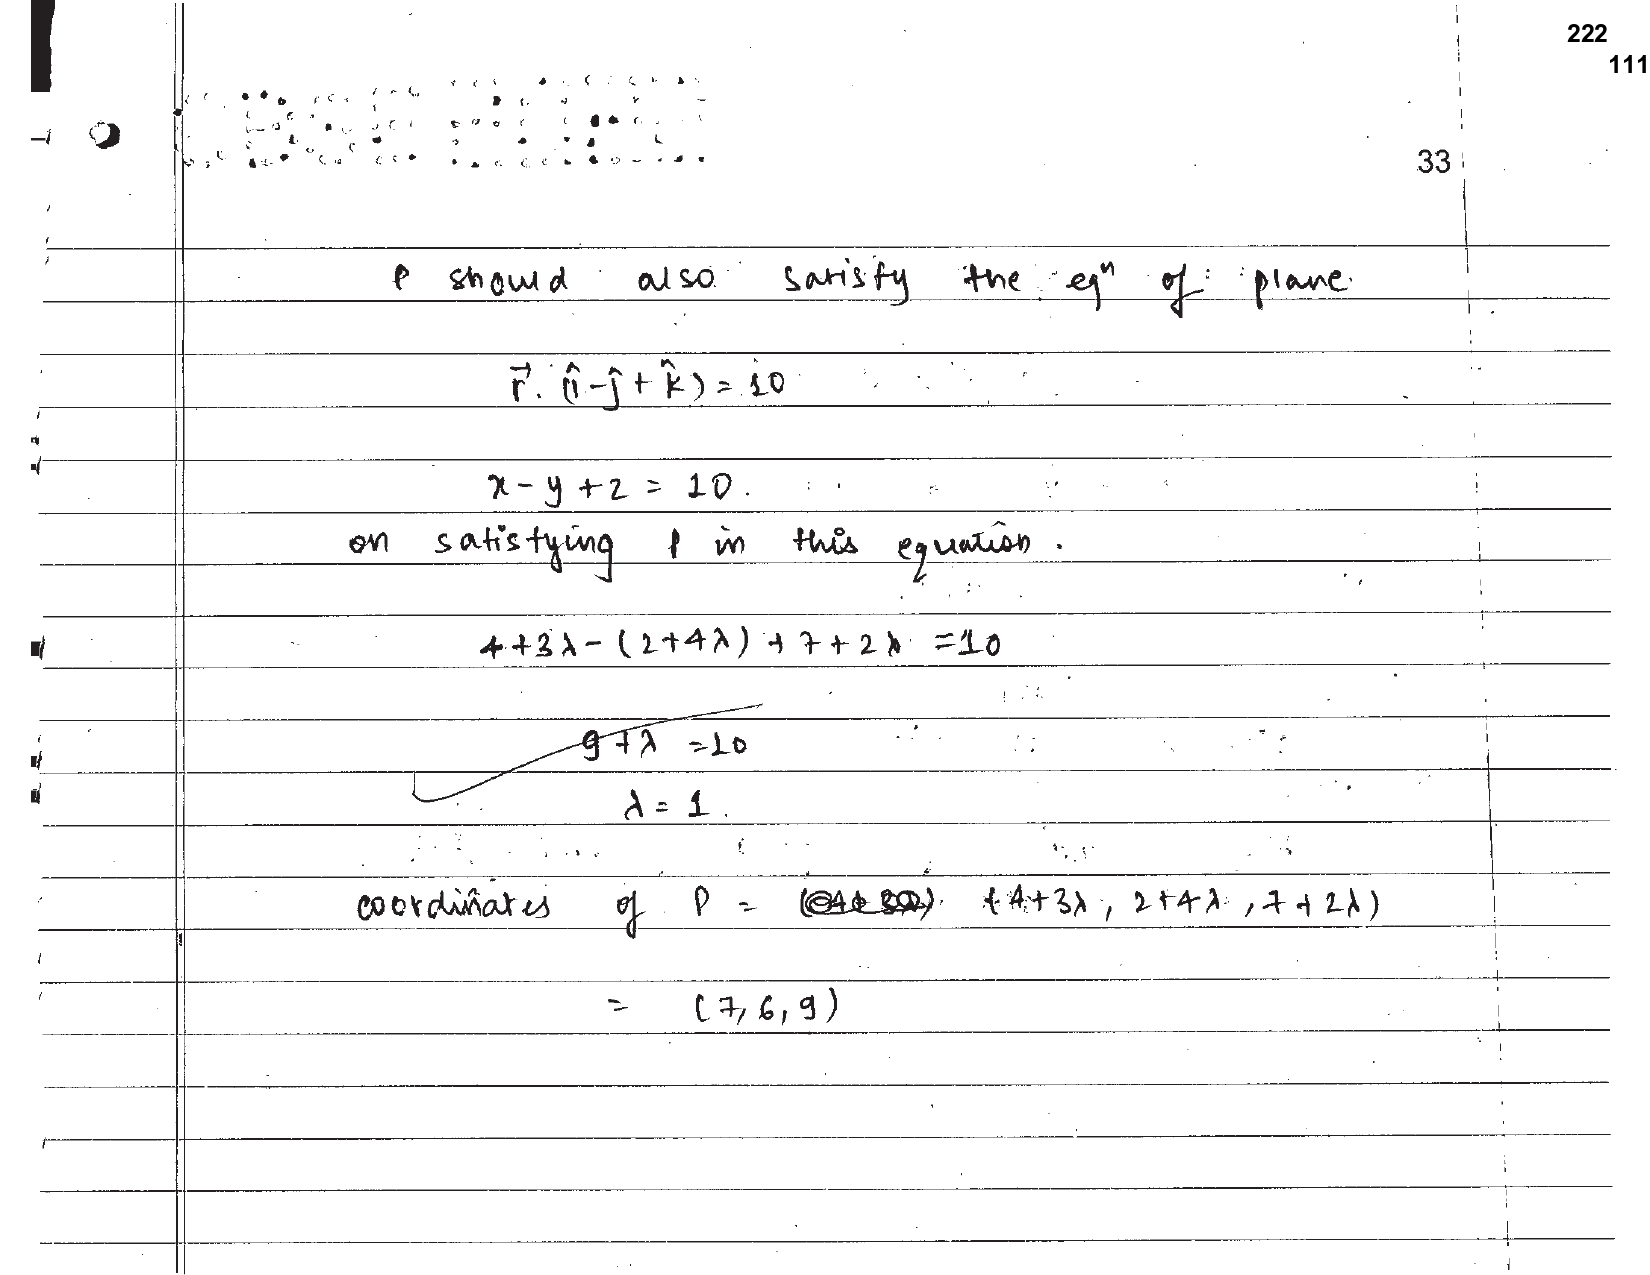 222
111
33
P should also satisfy the eqⁿ of plane.
r⃗. (î-ĵ+k̂) = 10
x - y + z = 10.
on satisfying P in this equation.
4+3λ - (2+4λ) + 7+2λ = 10
9+λ = 10
λ = 1.
coordinates of P = (4+3λ, 2+4λ, 7+2λ)
= (7, 6, 9)